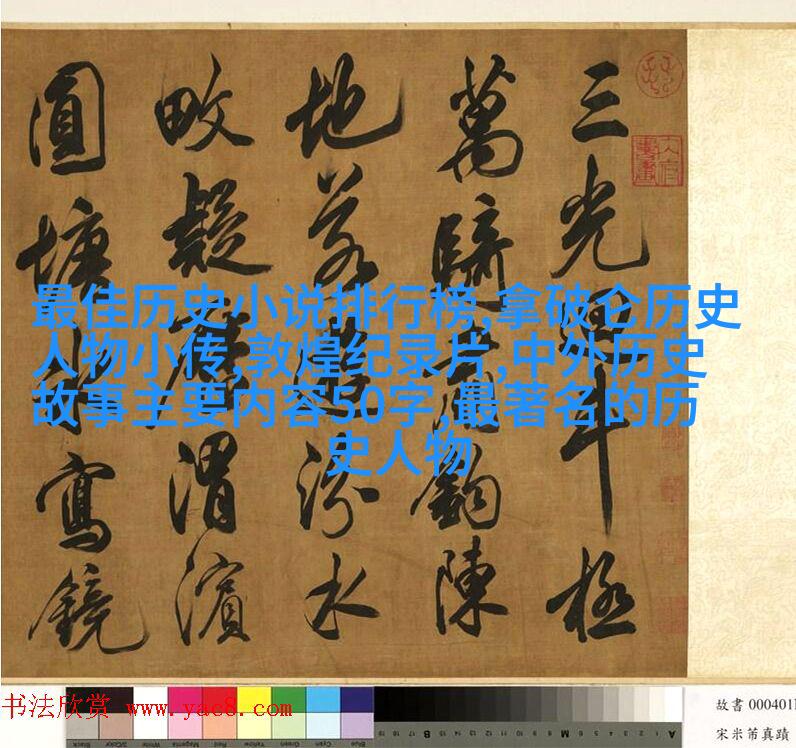 三光斗極
萬騎鈎陳
地若汾水
畋疑渭濱
圓塘寫鏡
最佳历史小说排行榜,拿破仑历史
人物小传,敦煌纪录片,中外历史
故事主要内容50字,最著名的历
史人物
书法欣赏 www.yac8.com
故書 000401
宋米芾真蹟